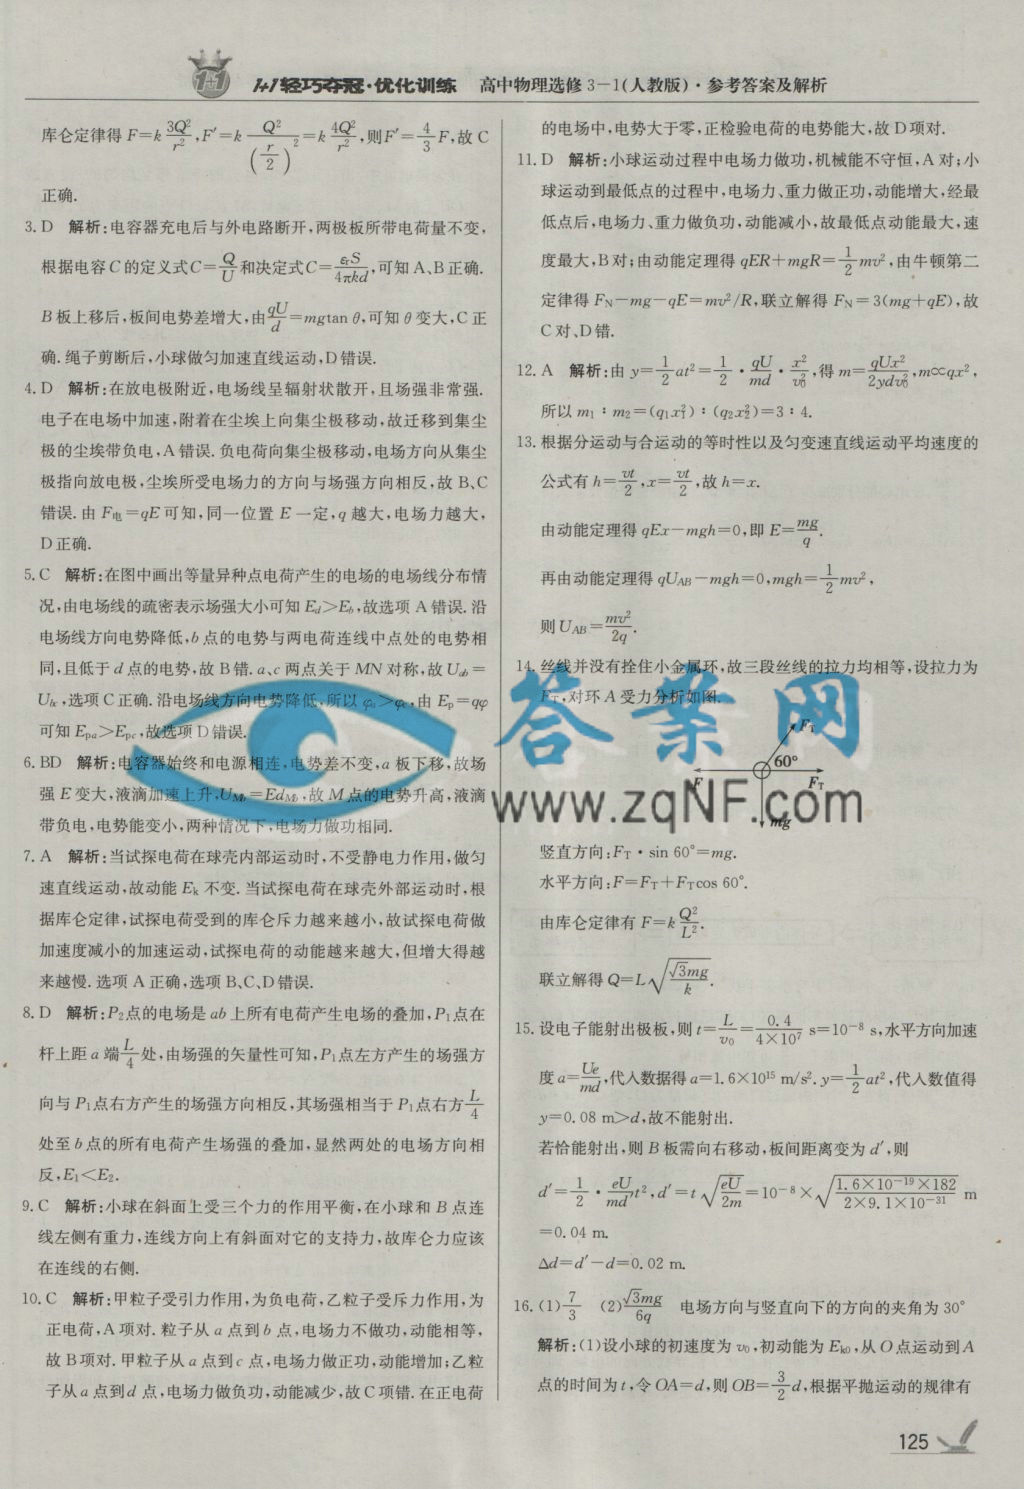 1+1轻巧夺冠·优化训练 高中物理选修3-1(人教版)·参考答案及解析
库仑定律得F=k3Q²/r²,F′=kQ²/(r/2)²=k4Q²/r²,则F′=4/3F,故C
正确.
3.D 解析:电容器充电后与外电路断开,两极板所带电荷量不变,
根据电容C的定义式C=Q/U和决定式C=εrS/4πkd,可知A、B正确.
B板上移后,板间电势差增大,由qU/d=mgtan θ,可知θ变大,C正
确.绳子剪断后,小球做匀加速直线运动,D错误.
4.D 解析:在放电极附近,电场线呈辐射状散开,且场强非常强.
电子在电场中加速,附着在尘埃上向集尘极移动,故迁移到集尘
极的尘埃带负电,A错误.负电荷向集尘极移动,电场方向从集尘
极指向放电极,尘埃所受电场力的方向与场强方向相反,故B、C
错误.由F电=qE可知,同一位置E一定,q越大,电场力越大,
D正确.
5.C 解析:在图中画出等量异种点电荷产生的电场的电场线分布情
况,由电场线的疏密表示场强大小可知Ed>Eb,故选项A错误.沿
电场线方向电势降低,b点的电势与两电荷连线中点处的电势相
同,且低于d点的电势,故B错.a、c两点关于MN对称,故Uab=
Ubc,选项C正确.沿电场线方向电势降低,所以φa>φc,由Ep=qφ
可知Epa>Epc,故选项D错误.
6.BD 解析:电容器始终和电源相连,电势差不变,a板下移,故场
强E变大,液滴加速上升,UMb=EdMb,故M点的电势升高,液滴
带负电,电势能变小,两种情况下,电场力做功相同.
7.A 解析:当试探电荷在球壳内部运动时,不受静电力作用,做匀
速直线运动,故动能Ek不变.当试探电荷在球壳外部运动时,根
据库仑定律,试探电荷受到的库仑斥力越来越小,故试探电荷做
加速度减小的加速运动,试探电荷的动能越来越大,但增大得越
来越慢.选项A正确,选项B、C、D错误.
8.D 解析:P2点的电场是ab上所有电荷产生电场的叠加,P1点在
杆上距a端L/4处,由场强的矢量性可知,P1点左方产生的场强方
向与P1点右方产生的场强方向相反,其场强相当于P1点右方L/4
处至b点的所有电荷产生场强的叠加,显然两处的电场方向相
反,E1<E2.
9.C 解析:小球在斜面上受三个力的作用平衡,在小球和B点连
线左侧有重力,连线方向上有斜面对它的支持力,故库仑力应该
在连线的右侧.
10.C 解析:甲粒子受引力作用,为负电荷,乙粒子受斥力作用,为
正电荷,A项对.粒子从a点到b点,电场力不做功,动能相等,
故B项对.甲粒子从a点到c点,电场力做正功,动能增加;乙粒
子从a点到d点,电场力做负功,动能减少,故C项错.在正电荷
的电场中,电势大于零,正检验电荷的电势能大,故D项对.
11.D 解析:小球运动过程中电场力做功,机械能不守恒,A对;小
球运动到最低点的过程中,电场力、重力做正功,动能增大,经最
低点后,电场力、重力做负功,动能减小,故最低点动能最大,速
度最大,B对;由动能定理得qER+mgR=1/2mv²,由牛顿第二
定律得FN-mg-qE=mv²/R,联立解得FN=3(mg+qE),故
C对、D错.
12.A 解析:由y=1/2at²=1/2·qU/md·x²/v0²,得m=qUx²/2ydv0²,m∝qx²,
所以m1∶m2=(q1x1²)∶(q2x2²)=3∶4.
13.根据分运动与合运动的等时性以及匀变速直线运动平均速度的
公式有h=vt/2,x=vt/2,故h=x.
由动能定理得qEx-mgh=0,即E=mg/q.
再由动能定理得qUAB-mgh=0,mgh=1/2mv²,
则UAB=mv²/2q.
14.丝线并没有拴住小金属环,故三段丝线的拉力均相等,设拉力为
FT,对环A受力分析如图.
FT
60°
F FT
mg
答案网
www.zqNF.com
竖直方向:FT·sin 60°=mg.
水平方向:F=FT+FTcos 60°.
由库仑定律有F=kQ²/L².
联立解得Q=L√(√3mg/k).
15.设电子能射出极板,则t=L/v0=0.4/4×10⁷ s=10⁻⁸ s,水平方向加速
度a=Ue/md,代入数据得a=1.6×10¹⁵ m/s².y=1/2at²,代入数值得
y=0.08 m>d,故不能射出.
若恰能射出,则B板需向右移动,板间距离变为d′,则
d′=1/2·eU/md′t²,d′=t√(eU/2m)=10⁻⁸×√(1.6×10⁻¹⁹×182/2×9.1×10⁻³¹) m
=0.04 m.
Δd=d′-d=0.02 m.
16.(1)7/3 (2)√3mg/6q 电场方向与竖直向下的方向的夹角为30°
解析:(1)设小球的初速度为v0,初动能为Ek0,从O点运动到A
点的时间为t,令OA=d,则OB=3/2d,根据平抛运动的规律有
125